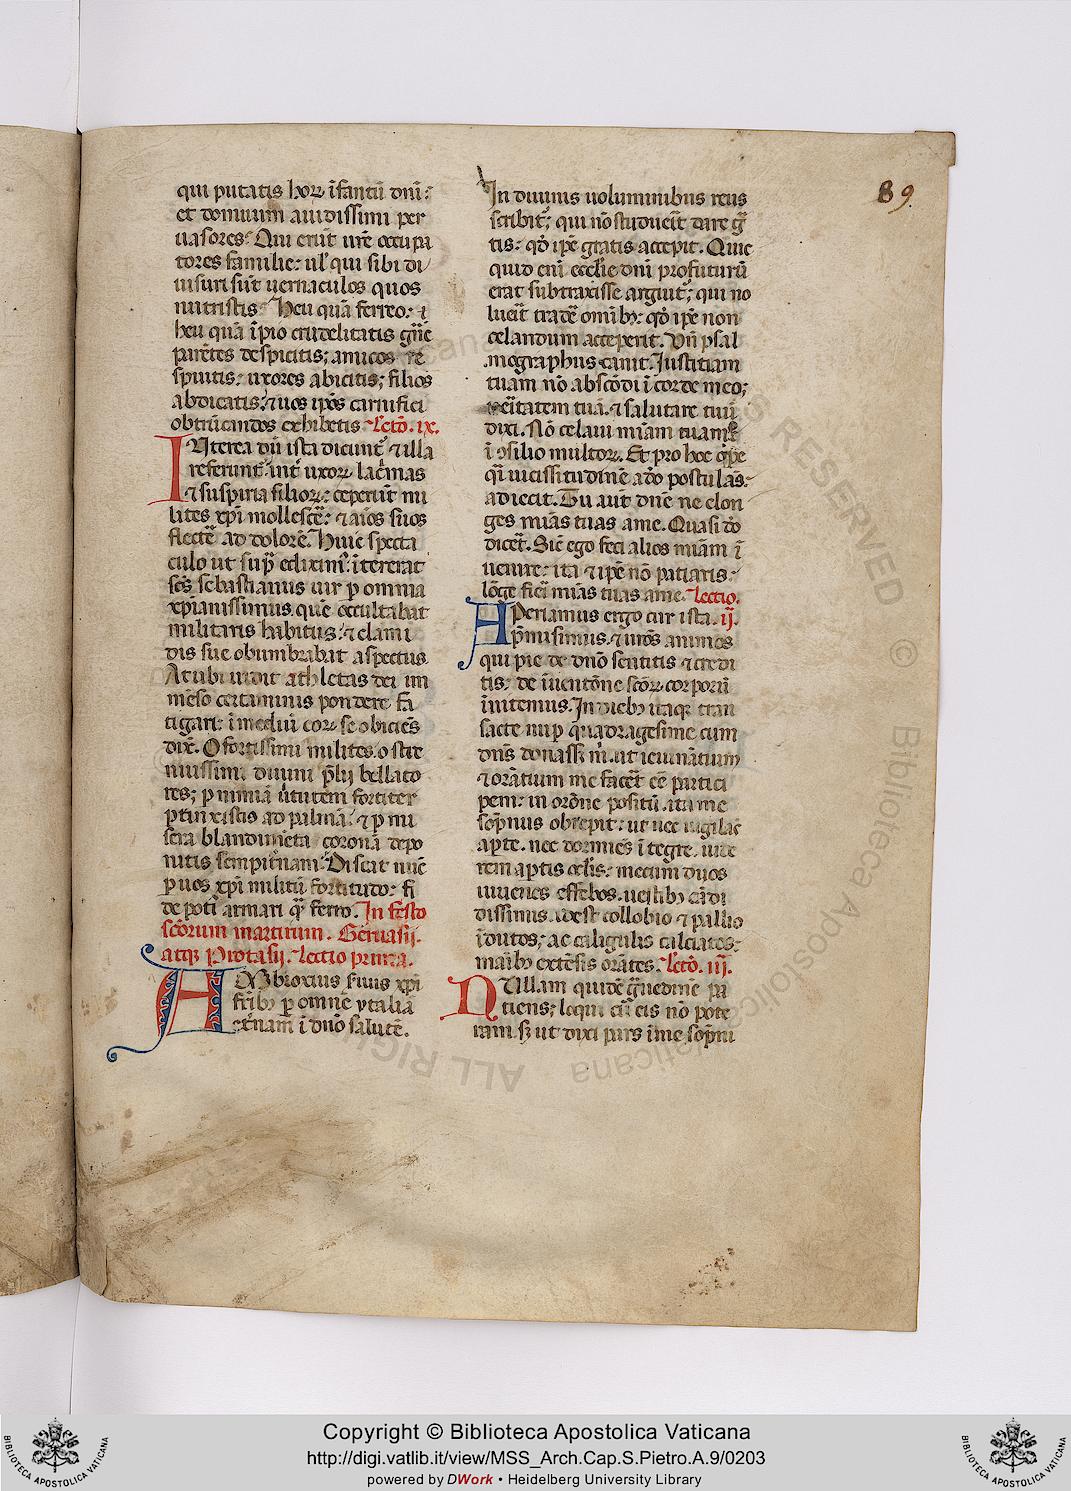 89.
qui putatis hoꝝ īfantū dn̄i:
et domuum auidissimi per
uasores? Qui erūt ur̄e occupa
tores familie: ul̓ qui sibi di
uisuri sūt uernaculos quos
nutristis? Heu quā ferreo: ⁊
heu quā īpio crudelitatis gn̄e
parētes despicitis; amicos re
spuitis: uxores abicitis; filios
abdicatis: ⁊ uos ip̄os carnifici
obtrūcandos exhibetis. Lectō. ix.
INterea dū ista dicunt᷑ ⁊ illa
referunt᷑ int᷑ uxoꝝ lac̓mas
⁊ suspiria filioꝝ: ceperūt mi
lites xp̄i mollesce᷑: ⁊ aīos suos
flecte᷑ ad dolorē. Huic specta
culo ut sup᷑ diximꝰ: īterat
sc̄s sebastianus uir ꝑ omnia
xp̄ianissimus, quē occultabat
militaris habitus: ⁊ clami
dis sue obumbrabat aspectus.
At ubi uidit athletas dei im
mēso certaminis pondere fa
tigari: ī mediū eoꝝ se obiciēs
dix̄. O fortissimi milites. o stre
nuissimi diuini p̄lij bellato
res; ꝑ nimiā ūtutem fortiter
ꝑtinxistis ad palmā: ⁊ ꝑ mi
sera blandimēta coronā depo
nitis sempit᷑nam? Discat nūc
ꝑ uos xp̄i militū fortitudo: fi
de poti᷑ armari qᷓ ferro. In festo
scōrum martirum. Geruasij.
atqꝫ Protasij. Lectio prima.
AMbrosius seruus xp̄i
fr̄ibꝫ ꝑ omnē ytaliā
et᷑nam ī dn̄o salutē.
In diuinis uoluminibus reus
scribit᷑; qui nō studuerīt dare g̓
tis: qd̓ ip̄e gratis accepit. Quic
quid enī ecclīe dn̄i profuturū
erat subtraxisse arguit᷑; qui no
luerit trade᷑ omībꝫ: qd̓ ip̄e non
celandum acceperit. Vn̄ psal
mographus canit. Iustitiam
tuam nō abscōdi ī corde meo;
ueritatem tuā. ⁊ salutare tuū
dixi. Nō celaui mīam tuam
ī ꝯsilio multoꝝ. Et pro hoc oꝑe
qᷓsi uicissitudinē a dō postulās:
adiecit. Tu aūt dn̄e ne elon
ges mīas tuas a me. Quasi dō
dicet᷑. Sic̄ ego feci alios mīam ī
uenire: ita ⁊ ip̄e nō patiaris:
lōge fieri mīas tuas a me. Lectio.
APeriamus ergo cur ista. ij.
p̄misimus. ⁊ uros animos
qui pie de dn̄o sentitis ⁊ credi
tis: de īuentōne scōꝝ corporū
īuitemus. In diebꝫ itaqꝫ tran
sacte nup̄ quadragesime cum
dn̄s donasset m̓. ut ieiunātium
⁊ orātium me facet᷑ eē partici
pem: in orōne positū. ita me
sop̄nus obrepit: ut nec uigilās
aꝑte. nec dormiēs ī tegre. uide
rem aꝑtis oclis: mecum duos
iuuenes effebos. uestibꝫ cādi
dissimis. idest collobio ⁊ pallio
īdutos; ac caligulis calciatos:
manibꝫ extēsis orātes. Lectō. iij.
NUllam quidē gn̄edine pa
tiens; loqui cū eis nō pote
ram. sꝫ ut dixi pars ī me sopni
ALL RIGHTS RESERVED © Biblioteca Apostolica Vaticana
Copyright © Biblioteca Apostolica Vaticana
http://digi.vatlib.it/view/MSS_Arch.Cap.S.Pietro.A.9/0203
powered by DWork • Heidelberg University Library
BIBLIOTECA APOSTOLICA VATICANA
BIBLIOTECA APOSTOLICA VATICANA